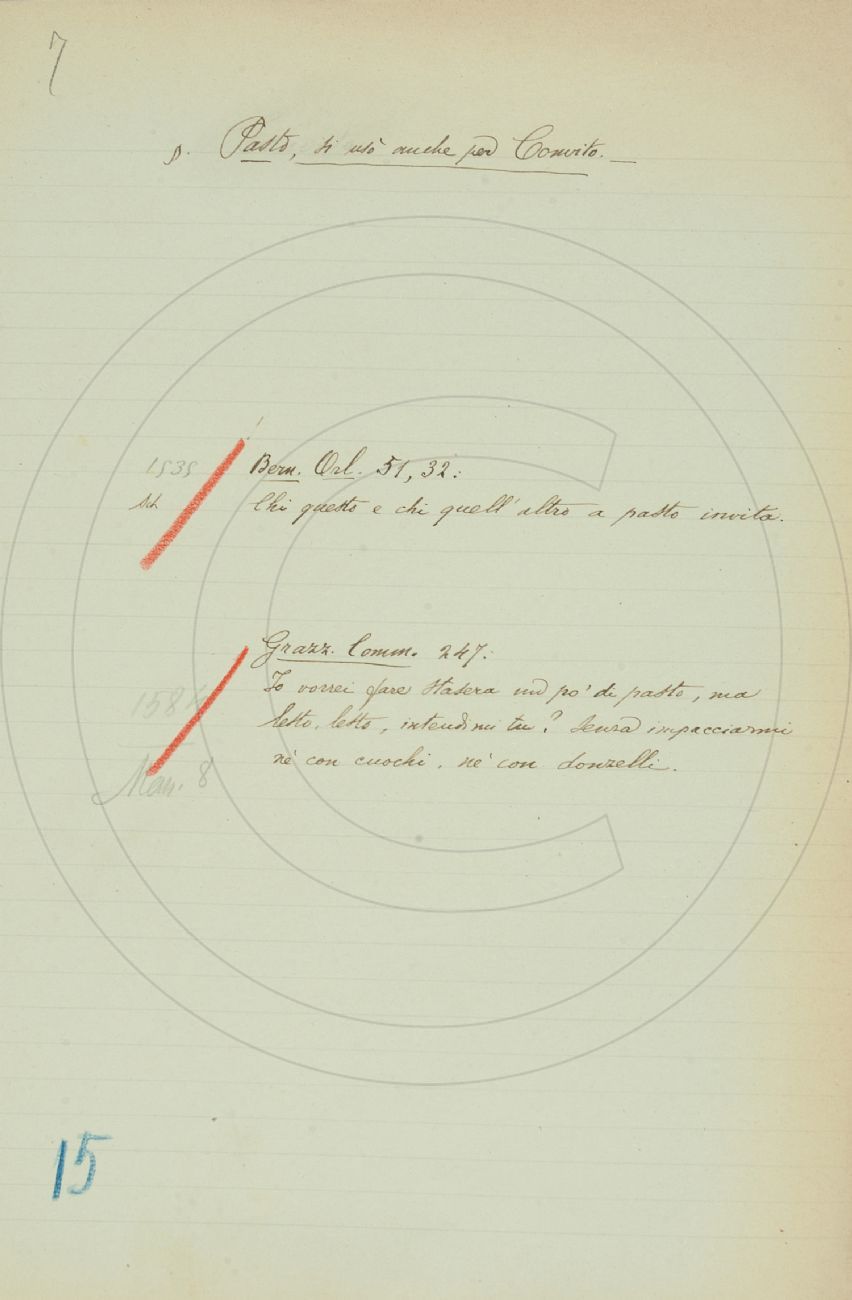 7
§. Pasto, si usò anche per Convito. —
1535
Bern. Orl. 51, 32:
Chi questo e chi quell'altro a pasto invita.
Grazz. Comm. 247:
Io vorrei fare stasera un po' di pasto, ma
lesto, lesto, intendimi tu? senza impacciarmi
nè con cuochi, nè con donzelli.
158
Man. 8
15